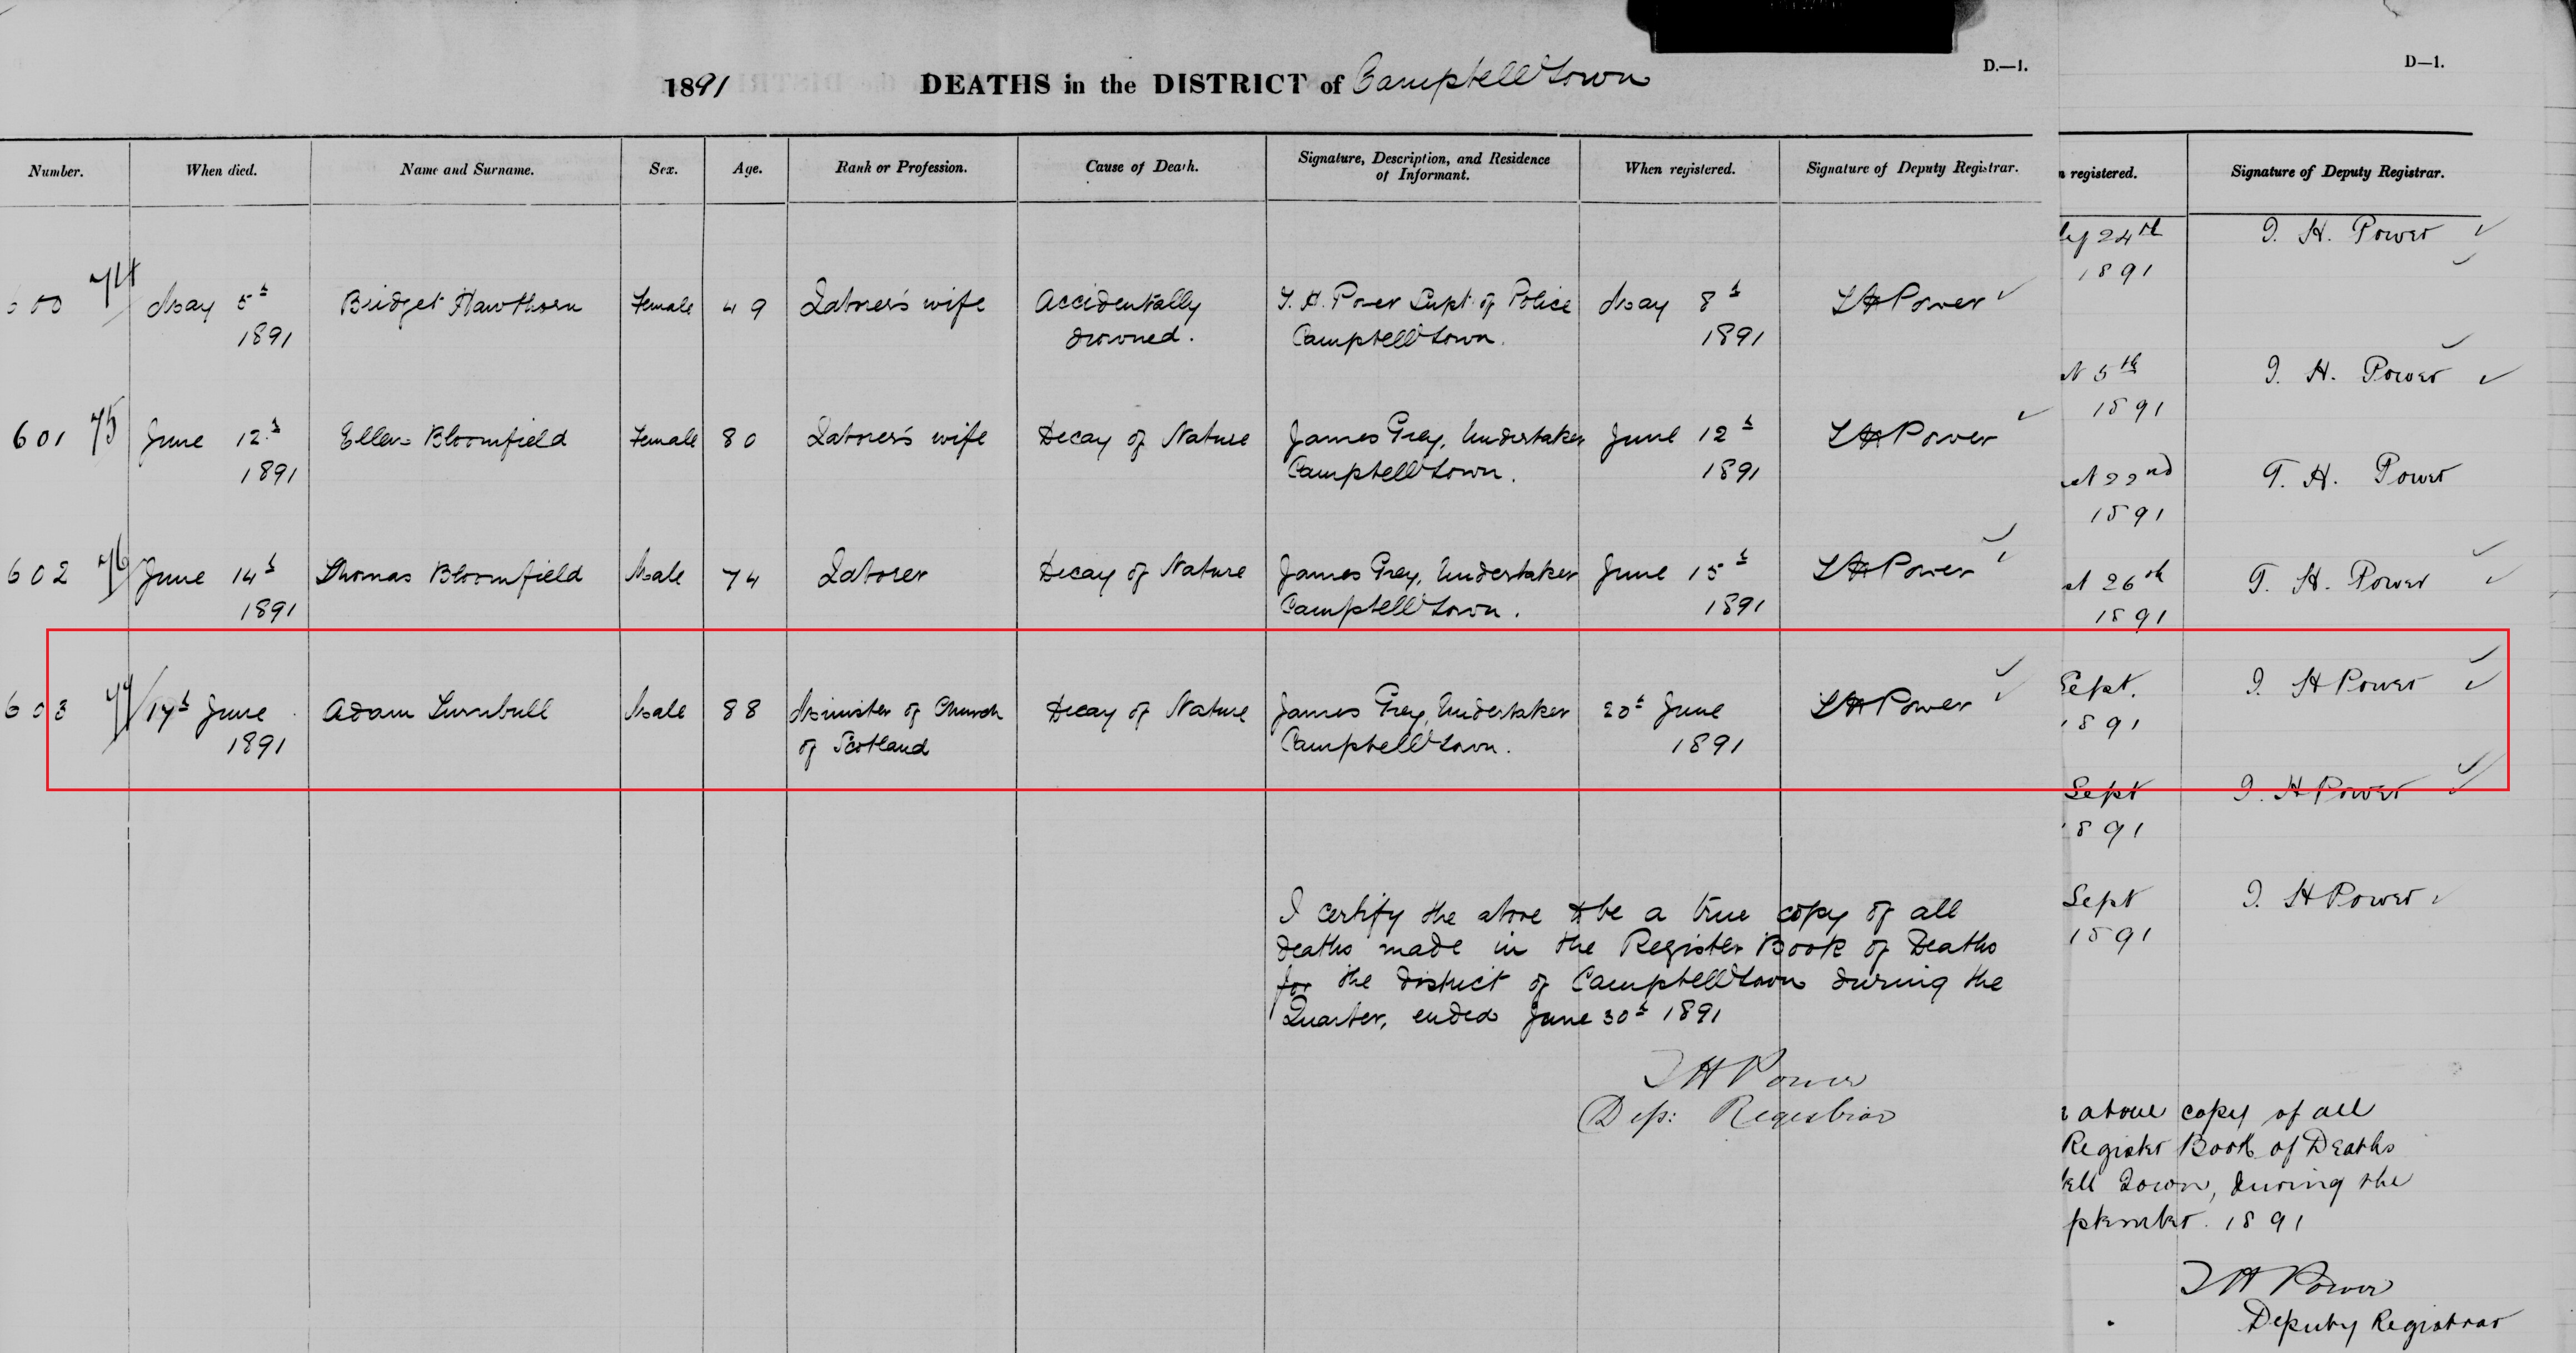 1891 DEATHS in the DISTRICT of Campbell Town D.—1.
Number. When died. Name and Surname. Sex. Age. Rank or Profession. Cause of Death. Signature, Description, and Residence of Informant. When registered. Signature of Deputy Registrar.
600 74 May 5th Bridget Hawthorn Female 49 Laborer's wife Accidentally T. H. Power Supt. of Police May 8th T H Power
1891 drowned. Campbell Town. 1891
601 75 June 12th Ellen Bloomfield Female 80 Laborer's wife Decay of Nature James Grey, Undertaker June 12th T H Power
1891 Campbell Town. 1891
602 76 June 14th Thomas Bloomfield Male 74 Laborer Decay of Nature James Grey, Undertaker June 15th T H Power
1891 Campbell Town. 1891
603 77 17th June Adam Turnbull Male 88 Minister of Church Decay of Nature James Grey, Undertaker 20th June T H Power
1891 of Scotland Campbell Town. 1891
I certify the above to be a true copy of all
deaths made in the Register Book of Deaths
for the district of Campbell Town during the
Quarter, ended June 30th 1891
T H Power
Dep: Registrar
D—1.
registered. Signature of Deputy Registrar.
24th T. H. Power
1891
5th T. H. Power
1891
22nd T. H. Power
1891
26th T. H. Power
1891
Sept. T. H Power
1891
Sept T. H Power
1891
Sept T. H Power
1891
above copy of all
Register Book of Deaths
ell Town, during the
ptember. 1891
T H Power
Deputy Registrar